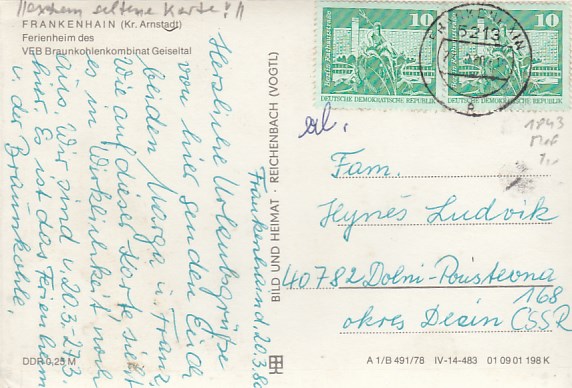 FRANKENHAIN (Kr. Arnstadt)
Ferienheim des
VEB Braunkohlenkombinat Geiseltal
Frankenhain, 20.3.82
Herzliche Urlaubsgrüße
von hier senden Euch
beiden Marga u. Franz.
Wie auf dieser Karte, sieht
es in Wirklichkeit noch
aus. Wir sind v. 20.3.-27.3.
hier. Es ist das Ferienheim
v. der Braunkohle.
DDR 0,25 M
BILD UND HEIMAT · REICHENBACH (VOGTL)
10
Berlin, Rathausstraße
DEUTSCHE DEMOKRATISCHE REPUBLIK
10
DEUTSCHE DEMOKRATISCHE REPUBLIK
5213
1843
Fam.
Heynés Ludvik
40782 Dolni-Poústevna
168
okres Decin ČSSR
A 1/B 491/78 IV-14-483 01 09 01 198 K